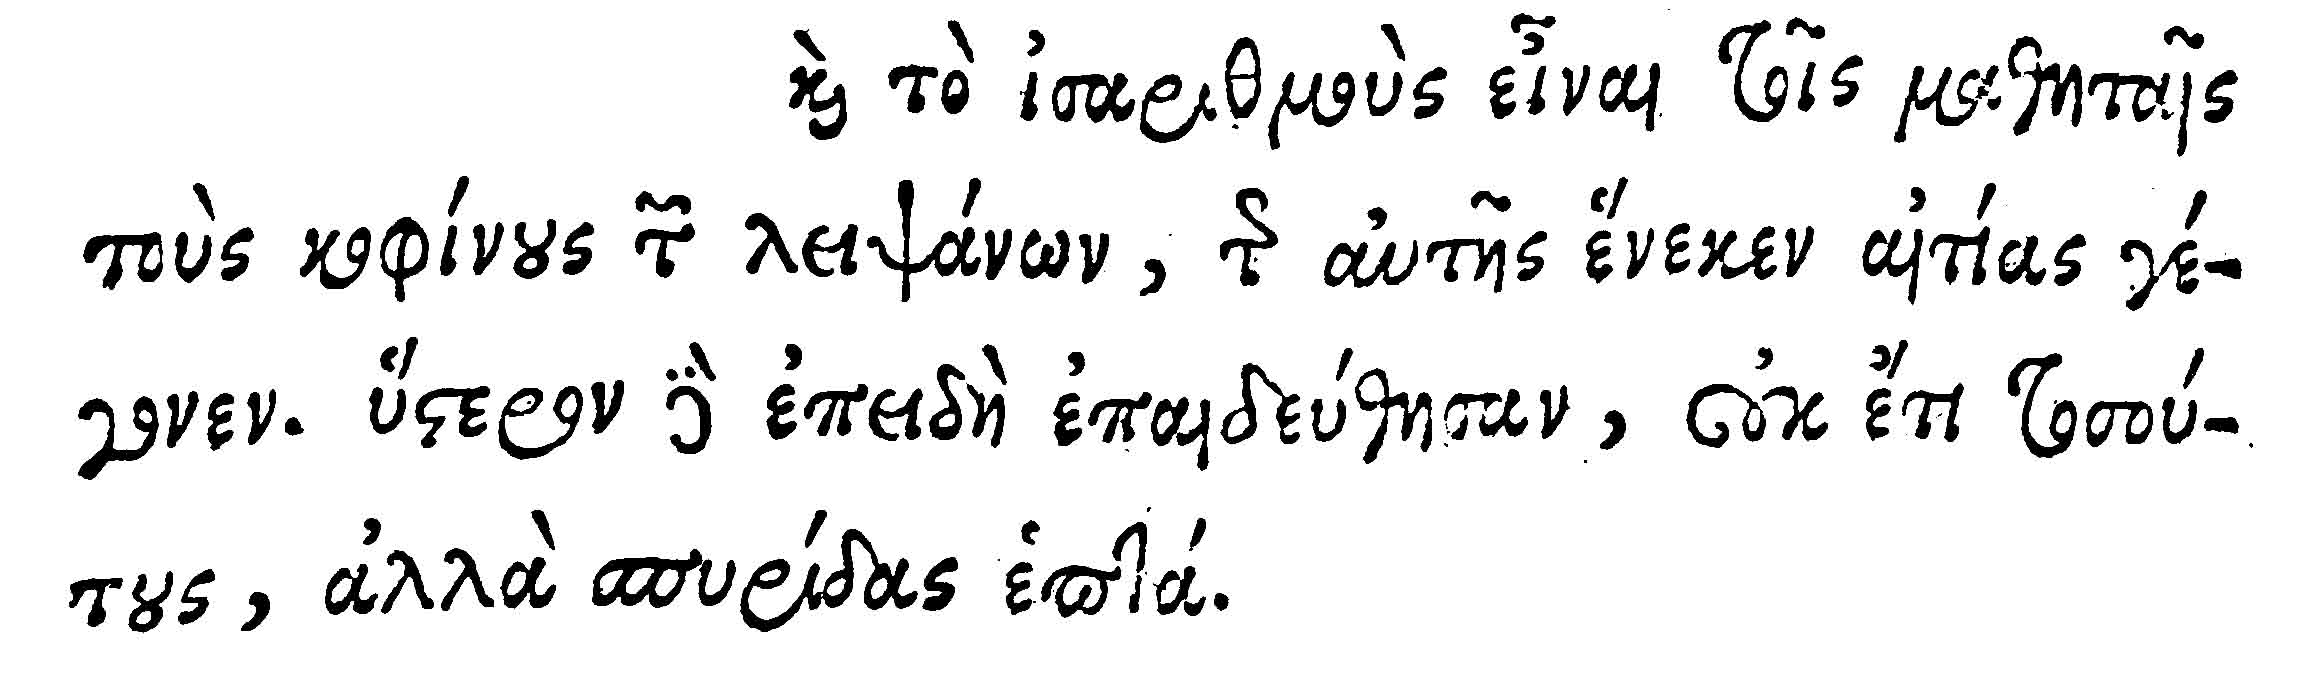 καὶ τὸ ἰσαριθμοὺς εἶναι τοῖς μαθηταῖς
τοὺς κοφίνους τῶν λειψάνων, τῆς αὐτῆς ἕνεκεν αἰτίας γέ-
γονεν. ὕστερον δὲ ἐπειδὴ ἐπαιδεύθησαν, οὐκ ἔτι τοσού-
τους, ἀλλὰ σπυρίδας ἑπτά.